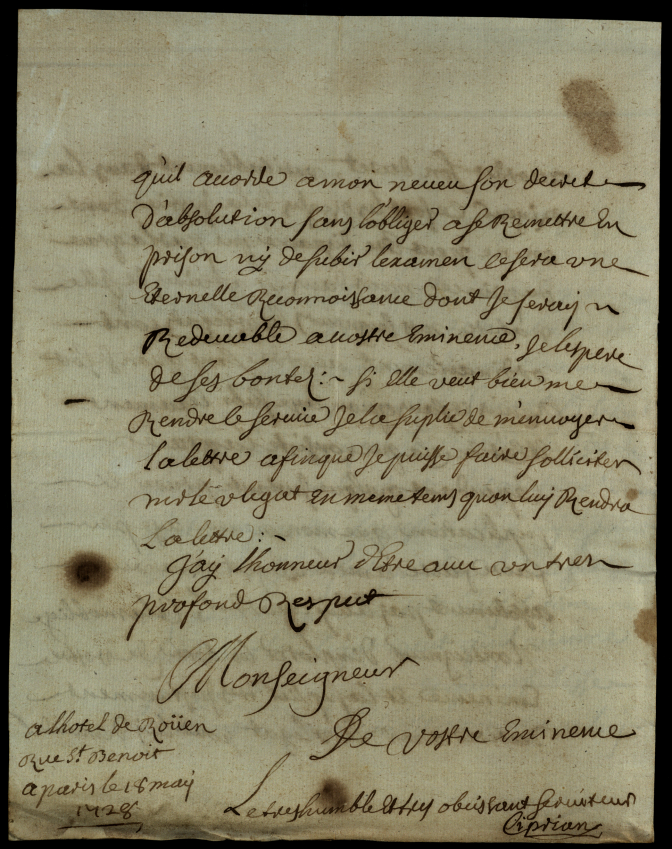 qu'il accorde a mon neveu son decret
D'absolution sans l'obliger a se Remettre En
prison ny de subir lexamen ce sera une
Eternelle Reconnoissance dont Je seray
Redevable a vostre Eminence, Je lespere
de ses bontez :~ si Elle veut bien me
Rendre le service Je la suplie de m'envoyer
la lettre afinque Je puisse faire solliciter
le vi legat En meme tems quon luy Rendra
La lettre :~
J'ay lhonneur d'Etre avec un tres
profond Respect
Monseigneur
De vostre Eminence
a lhotel de Roüen
Rue St Benoit
a paris le 18 may
1728
Le tres humble Et tres obeissant serviteur
Ciprian